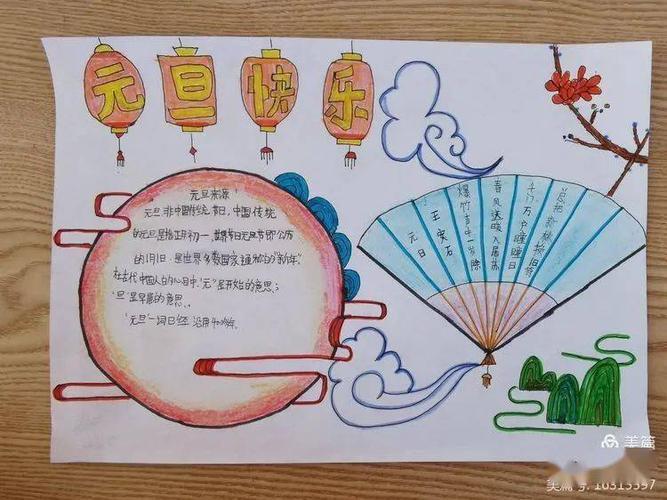 元旦快乐
元旦来源
元旦非中国传统节日,中国传统
的元旦是指正月初一,节日元旦节即公历
的1月1日,是世界多数国家通称的"新年".
在古代中国人的心目中,"元"是开始的意思;
"旦"是早晨的意思.
"元旦"一词已经沿用
元日
王安石
爆竹声中一岁除
春风送暖入屠苏
千门万户曈曈日
总把新桃换旧符
美篇
美篇号:10313397